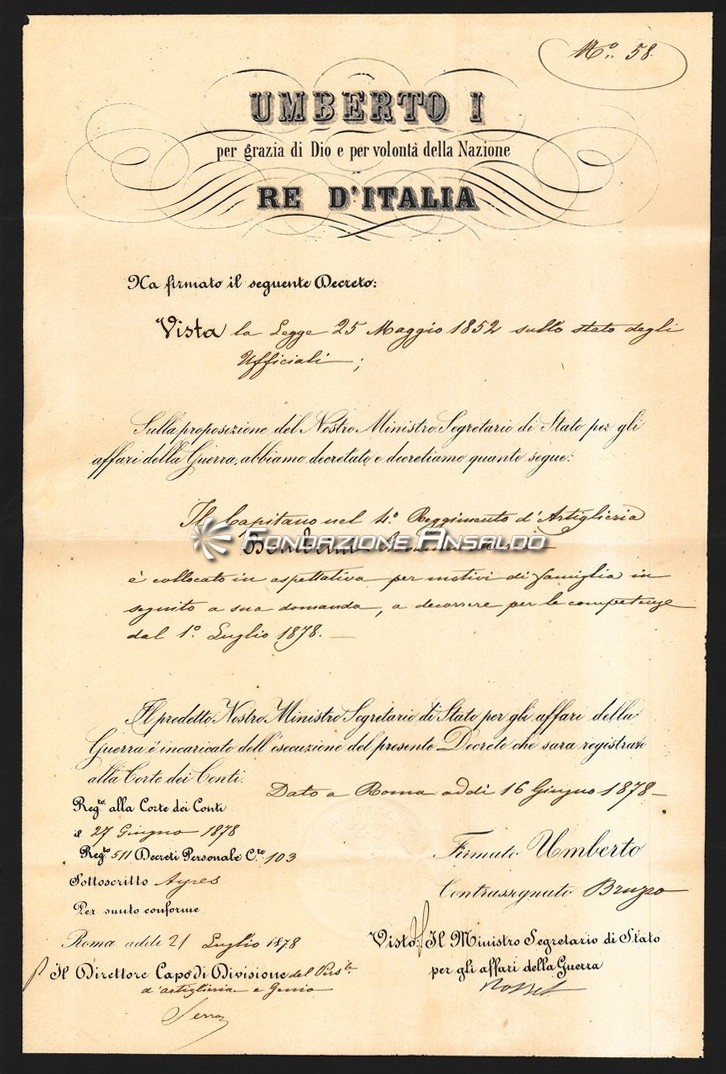 N.º 58
UMBERTO I
per grazia di Dio e per volontà della Nazione
RE D'ITALIA
Ha firmato il seguente Decreto:
Vista la Legge 25 Maggio 1852 sullo stato degli
Ufficiali;
Sulla proposizione del Nostro Ministro Segretario di Stato per gli
affari della Guerra, abbiamo decretato e decretiamo quanto segue:
Il Capitano nel 4.º Reggimento d'Artiglieria
FONDAZIONE ANSALDO
è collocato in aspettativa per motivi di famiglia in
seguito a sua domanda, a decorrere per le competenze
dal 1.º Luglio 1878.
Il predetto Nostro Ministro Segretario di Stato per gli affari della
Guerra è incaricato dell'esecuzione del presente Decreto che sarà registrato
alla Corte dei Conti.
Dato a Roma addì 16 Giugno 1878
Reg.to alla Corte dei Conti
il 27 Giugno 1878
Reg.º 511 Decreti Personale C.te 103
Sottoscritto Ayres
Per sunto conforme
Roma addì 21 Luglio 1878
Il Direttore Capo di Divisione del Pers.le
d'artiglieria e Genio
Serra
Firmato Umberto
Contrassegnato Bruzzo
Visto: Il Ministro Segretario di Stato
per gli affari della Guerra